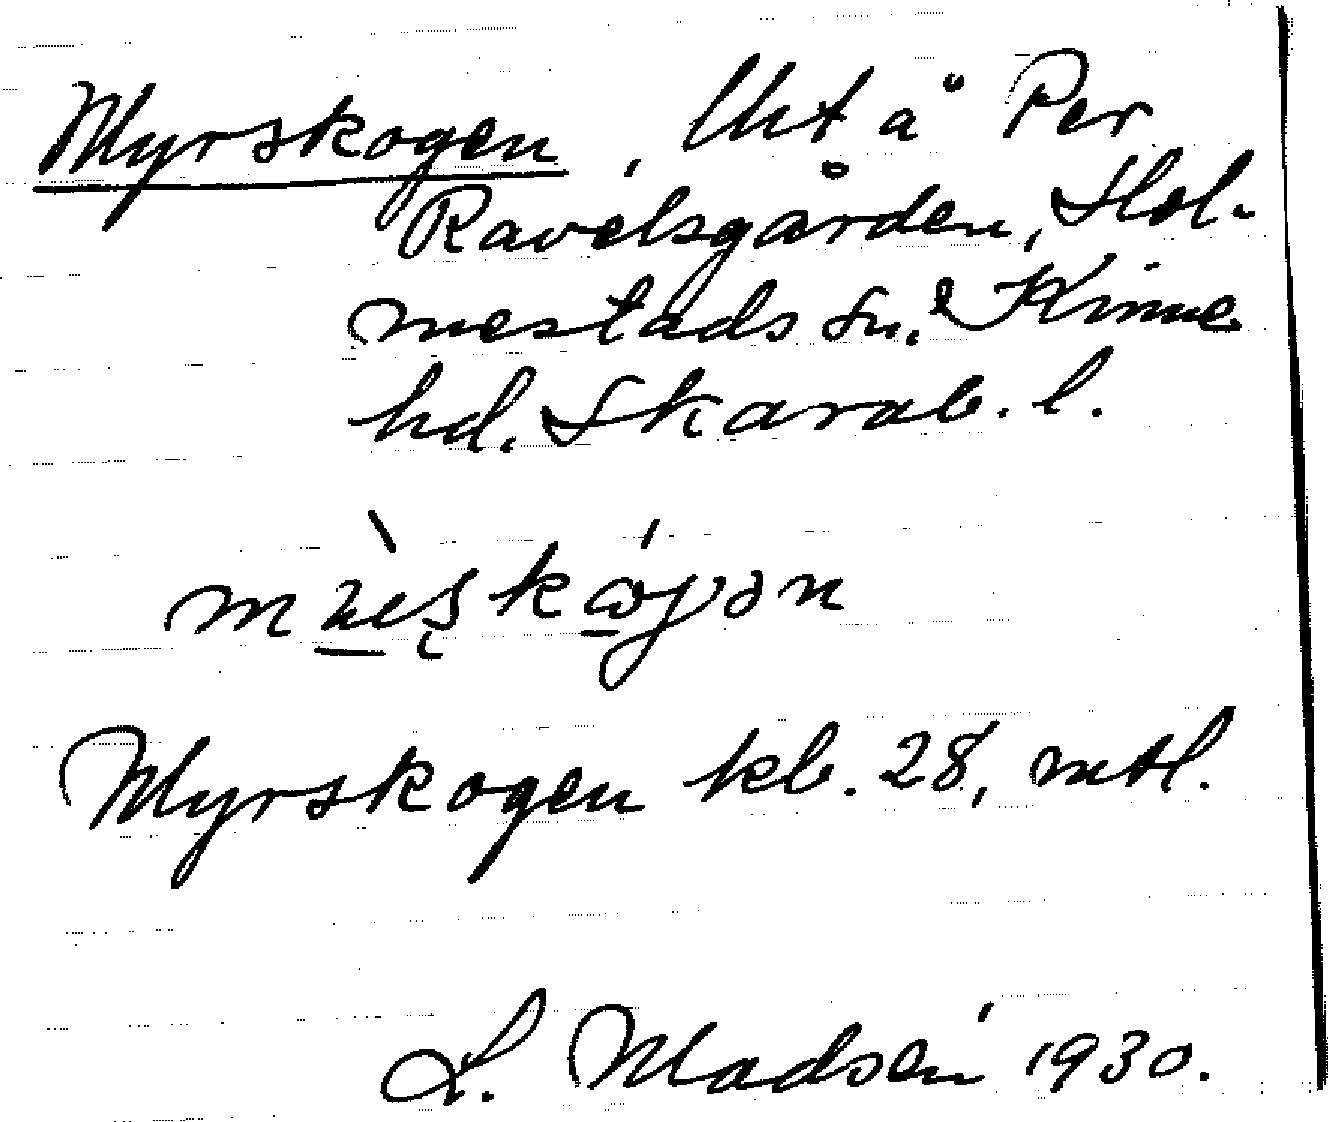 Myrskogen, Utt å Per
Ravelsgården, Hol-
mestads sn. Kinne
hd. Skarab. l.
Myrskogen kb. 28, mtl.
L. Madsén 1930.